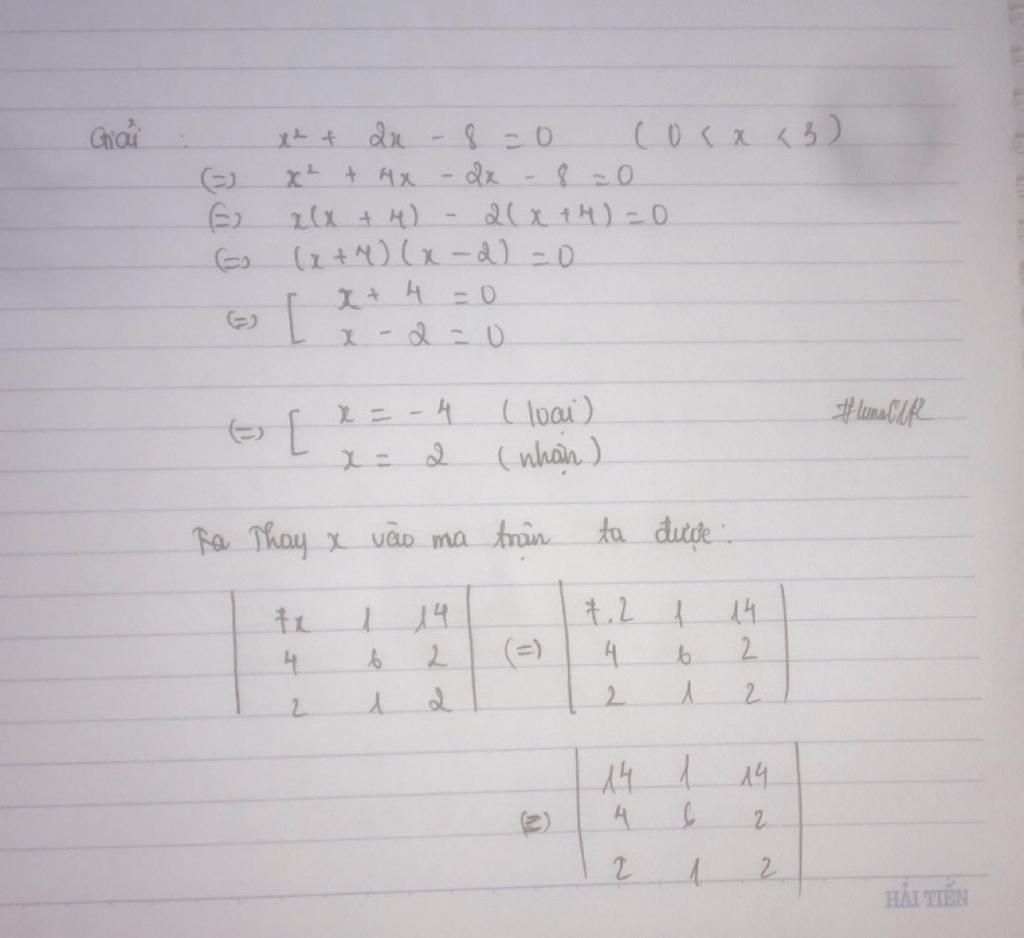 Giải : x² + 2x - 8 = 0 ( 0 < x < 3 )
(=) x² + 4x - 2x - 8 = 0
(=) x(x + 4) - 2(x + 4) = 0
(=) (x + 4)(x - 2) = 0
(=) [ x + 4 = 0
x - 2 = 0
(=) [ x = - 4 (loại)
x = 2 (nhận)
Ta Thay x vào ma trận ta được :
| 7x 1 14 | (=) | 7.2 1 14 |
| 4 6 2 | | 4 6 2 |
| 2 1 2 | | 2 1 2 |
(=) | 14 1 14 |
| 4 6 2 |
| 2 1 2 |
HẢI TIẾN